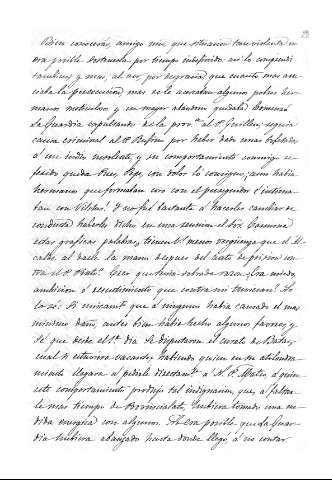 Bien conocerás, amigo mio, que situacion tan violenta no
era posible sostenerla por tiempo indefinido: así lo comprendi
tambien y mas, al ver por desgracia que cuanto mas ar-
ciaba la persecucion mas se le acercaban algunos pobres her-
manos nuestros y en mayor abandono quedaba. Comenzó
la Guardia expulsando de la prov.ª al P. Guillen; seguia
causa criminal al P. Rufino por haber dado unas bofetadas
á un indio insolente y su comportamiento conmigo re-
petido queda. Pues, Pepe, con dolor lo consigno; aun habia
hermanos que formaban coro con el perseguidor é intima-
ban con Villena! Y no fué bastante á hacerles cambiar de
conducta haberles dicho en una reunion el Sor. Carmona
estas graficas palabras, tienen V.s menos vergüenza que el Al-
calde al darle la mano despues del auto de prision con-
tra el P. Prato. Que que tenia sobrada razon; Era miedo,
ambicion ó resentimiento que contra mi tuviesen? No
lo sé: Si unicam.te que á ninguno habia causado el mas
minimo daño, antes bien habia hecho algunos favores, y
sé que desde el 1er dia se disputaron el curato de Batac,
cual si estuviera vacante; habiendo quien en su atolondra-
miento llegara á pedirle directam.te á N. P. Mateo, á quien
este comportamiento produjo tal indignacion, que, á faltar-
le mas tiempo de Provincialato, hubiera tomado una me-
dida energica con algunos. Solo era posible que la Guar-
dia hubiera abanzado hasta donde llegó, á no contar